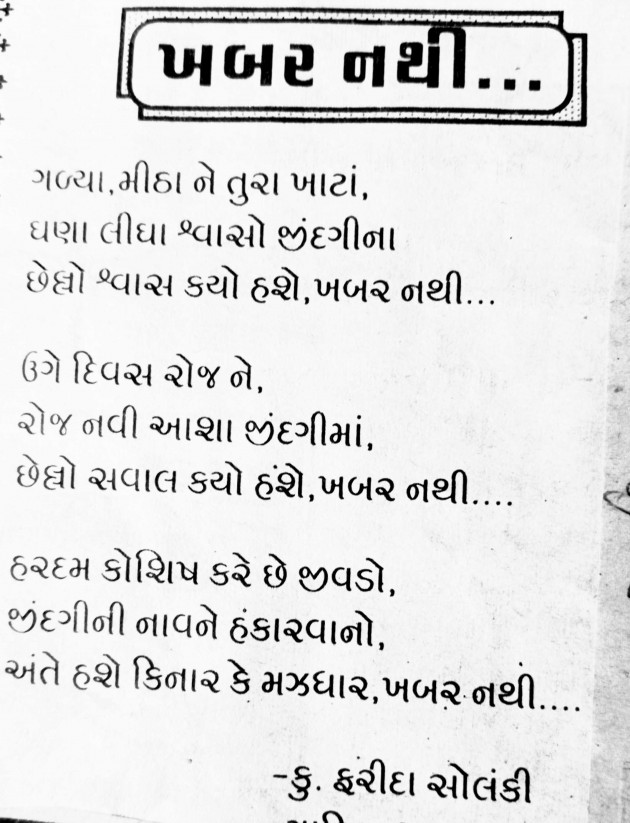 ખબર નથી...
ગળ્યા,મીઠા ને તુરા ખાટાં,
ઘણા લીધા શ્વાસો જીંદગીના
છેલ્લો શ્વાસ કયો હશે,ખબર નથી...
ઉગે દિવસ રોજ ને,
રોજ નવી આશા જીંદગીમાં,
છેલ્લો સવાલ કયો હંશે,ખબર નથી....
હરદમ કોશિષ કરે છે જીવડો,
જીંદગીની નાવને હંકારવાનો,
અંતે હશે કિનાર કે મઝધાર,ખબર નથી....
-કુ. ફરીદા સોલંકી